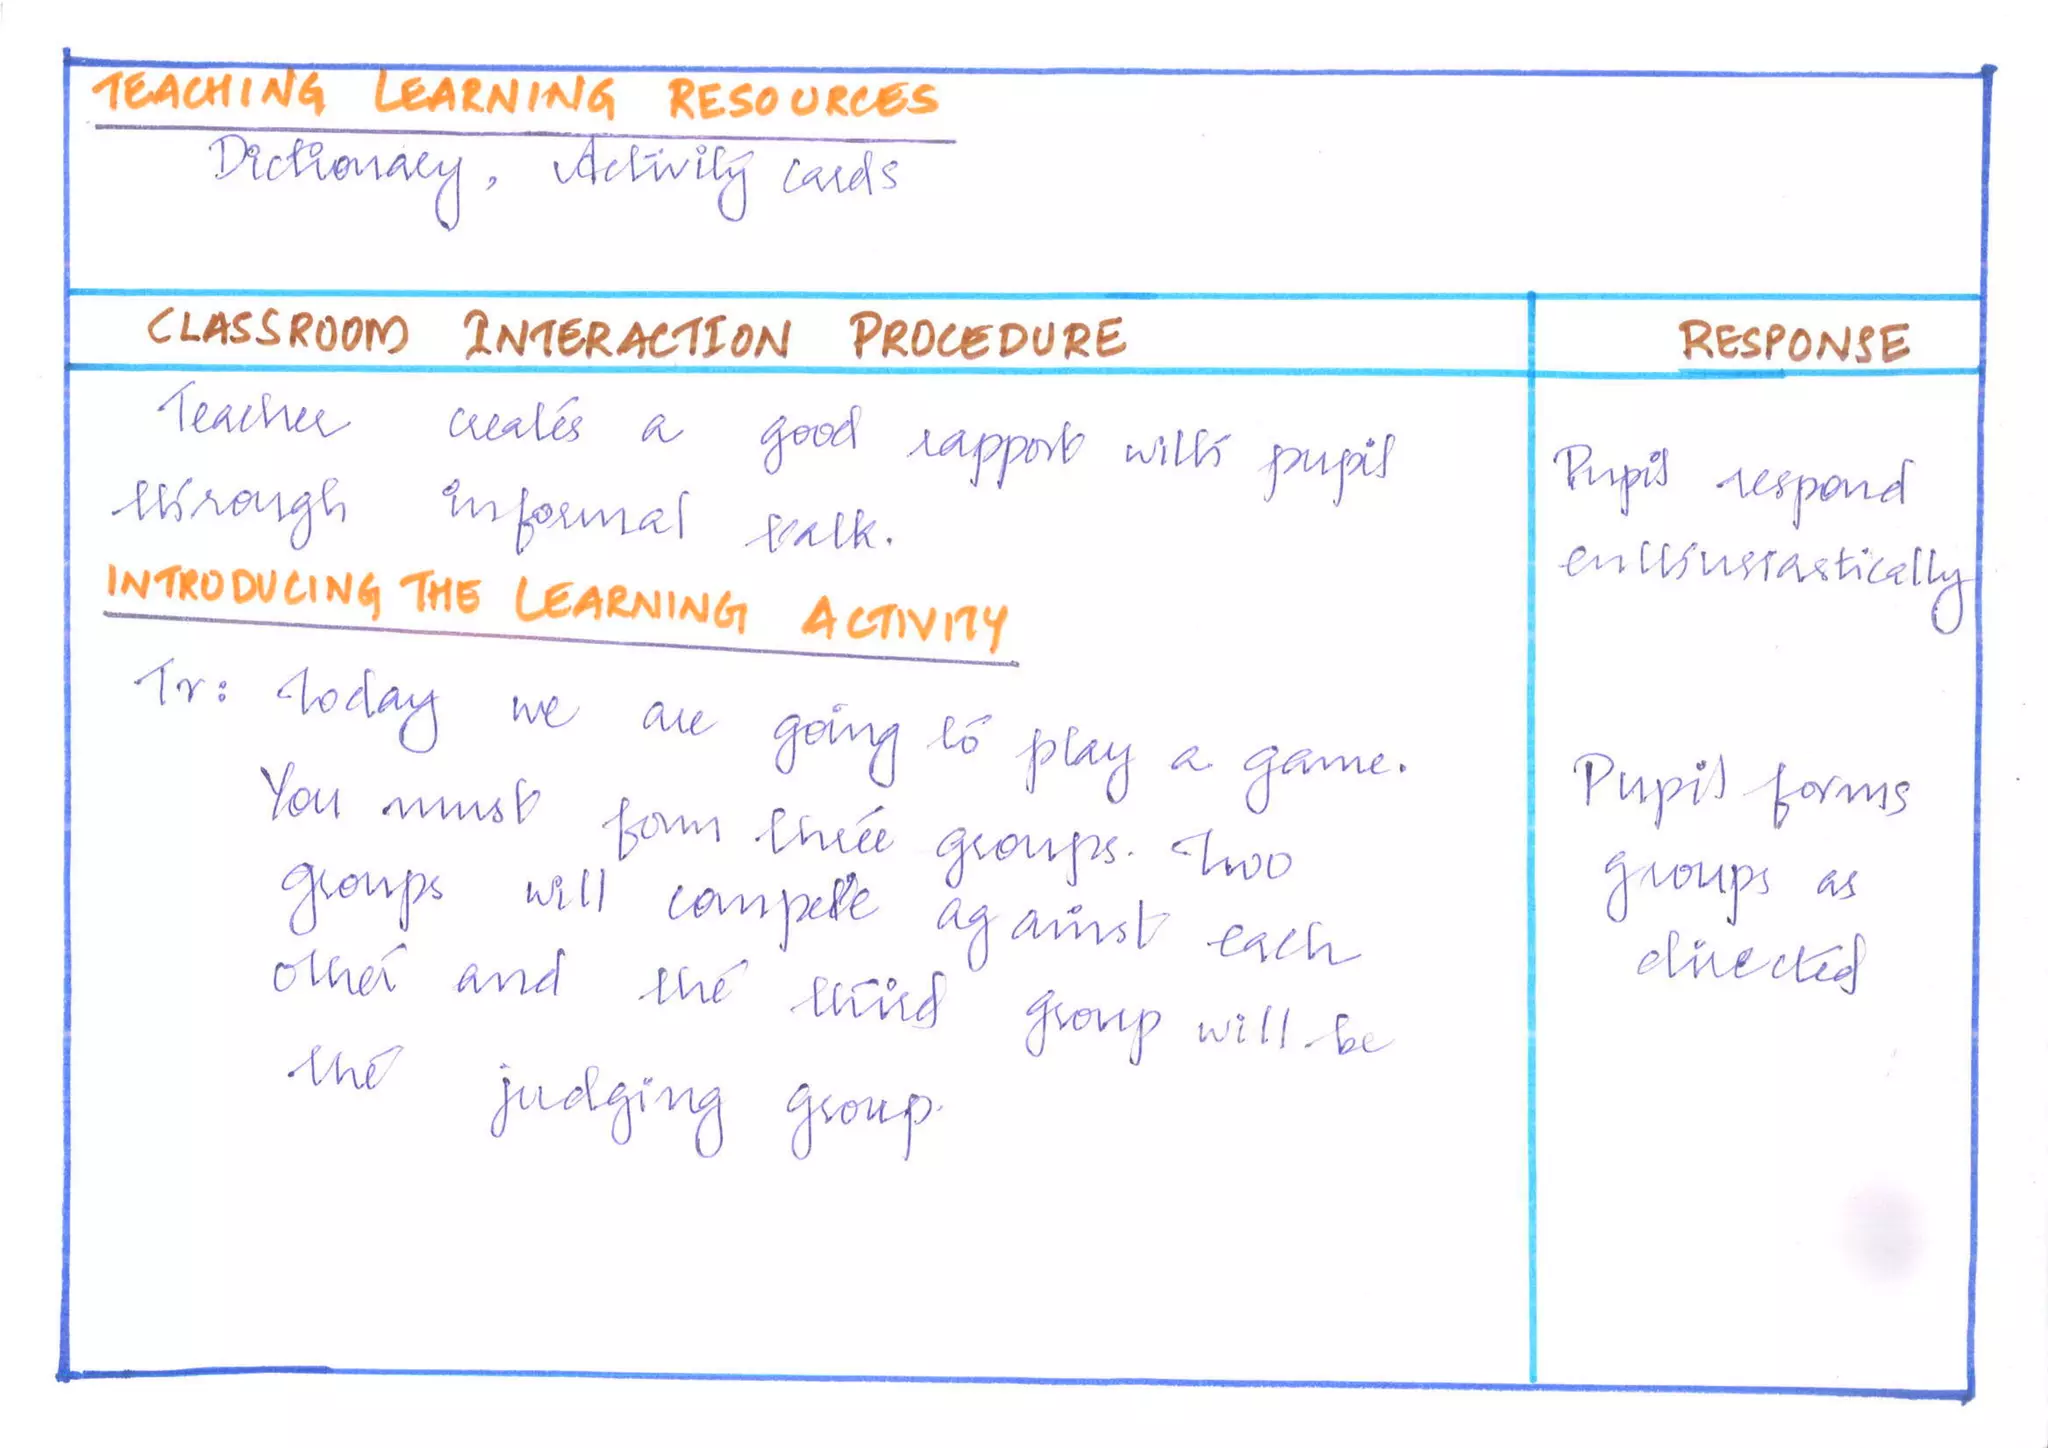 TEACHING LEARNING RESOURCES
Dictionary, Activity cards
CLASSROOM INTERACTION PROCEDURE
RESPONSE
Teacher creates a good rapport with pupil
through informal talk.
Pupil respond
enthusiastically
INTRODUCING THE LEARNING ACTIVITY
Tr: Today we are going to play a game.
You must form three groups. Two
groups will compete against each
other and the third group will be
the judging group.
Pupil forms
groups as
directed